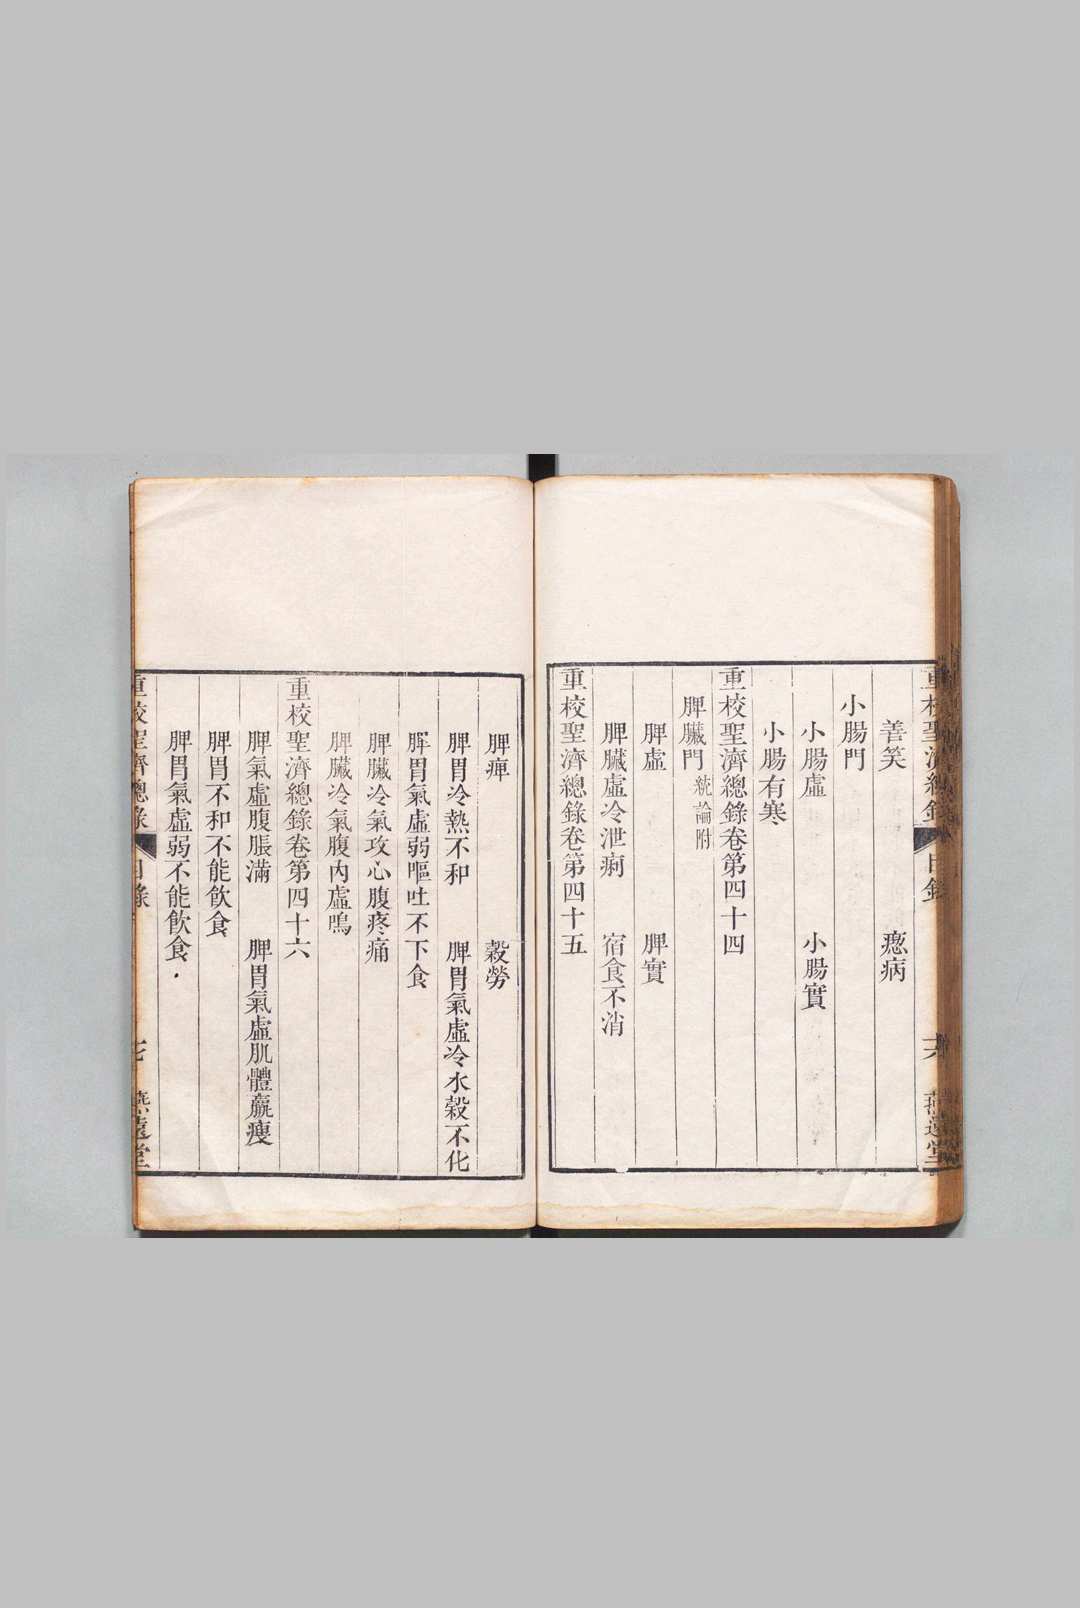 重校聖濟總錄 目錄 六 燕遠堂
善笑 瘛病
小腸門
小腸虛 小腸實
小腸有寒
重校聖濟總錄卷第四十四
脾臟門 統論附
脾虛 脾實
脾臟虛冷泄痢 宿食不消
重校聖濟總錄卷第四十五
脾癉 穀勞
脾胃冷熱不和 脾胃氣虛冷水穀不化
脾胃氣虛弱嘔吐不下食
脾臟冷氣攻心腹疼痛
脾臟冷氣腹內虛鳴
重校聖濟總錄卷第四十六
脾氣虛腹脹滿 脾胃氣虛肌體羸瘦
脾胃不和不能飲食
脾胃氣虛弱不能飲食
重校聖濟總錄 目錄 七 燕遠堂